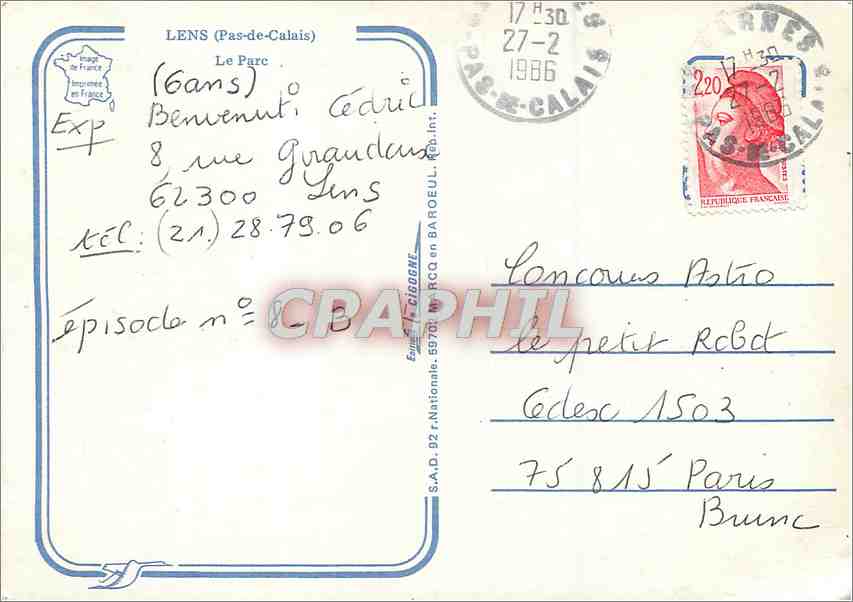 LENS (Pas-de-Calais)
Le Parc
Image
de France
Imprimée
en France
(6ans)
Exp Benvenuti Cédric
8, rue
62300 Lens
tél: (21.) 28.79.06
épisode n° 8 - B
CPAPHIL
S.A.D. 92 r. Nationale. 59702 MARCQ en BAROEUL. Rep. Int.
la CIGOGNE
17 H 30
27-2
1986
PAS-DE-CALAIS
17 H 30
27-2
1986
PAS-DE-CALAIS
2,20
REPUBLIQUE FRANÇAISE
Concours Astro
le petit Robot
Cedex 1503
75 815 Paris
Brune